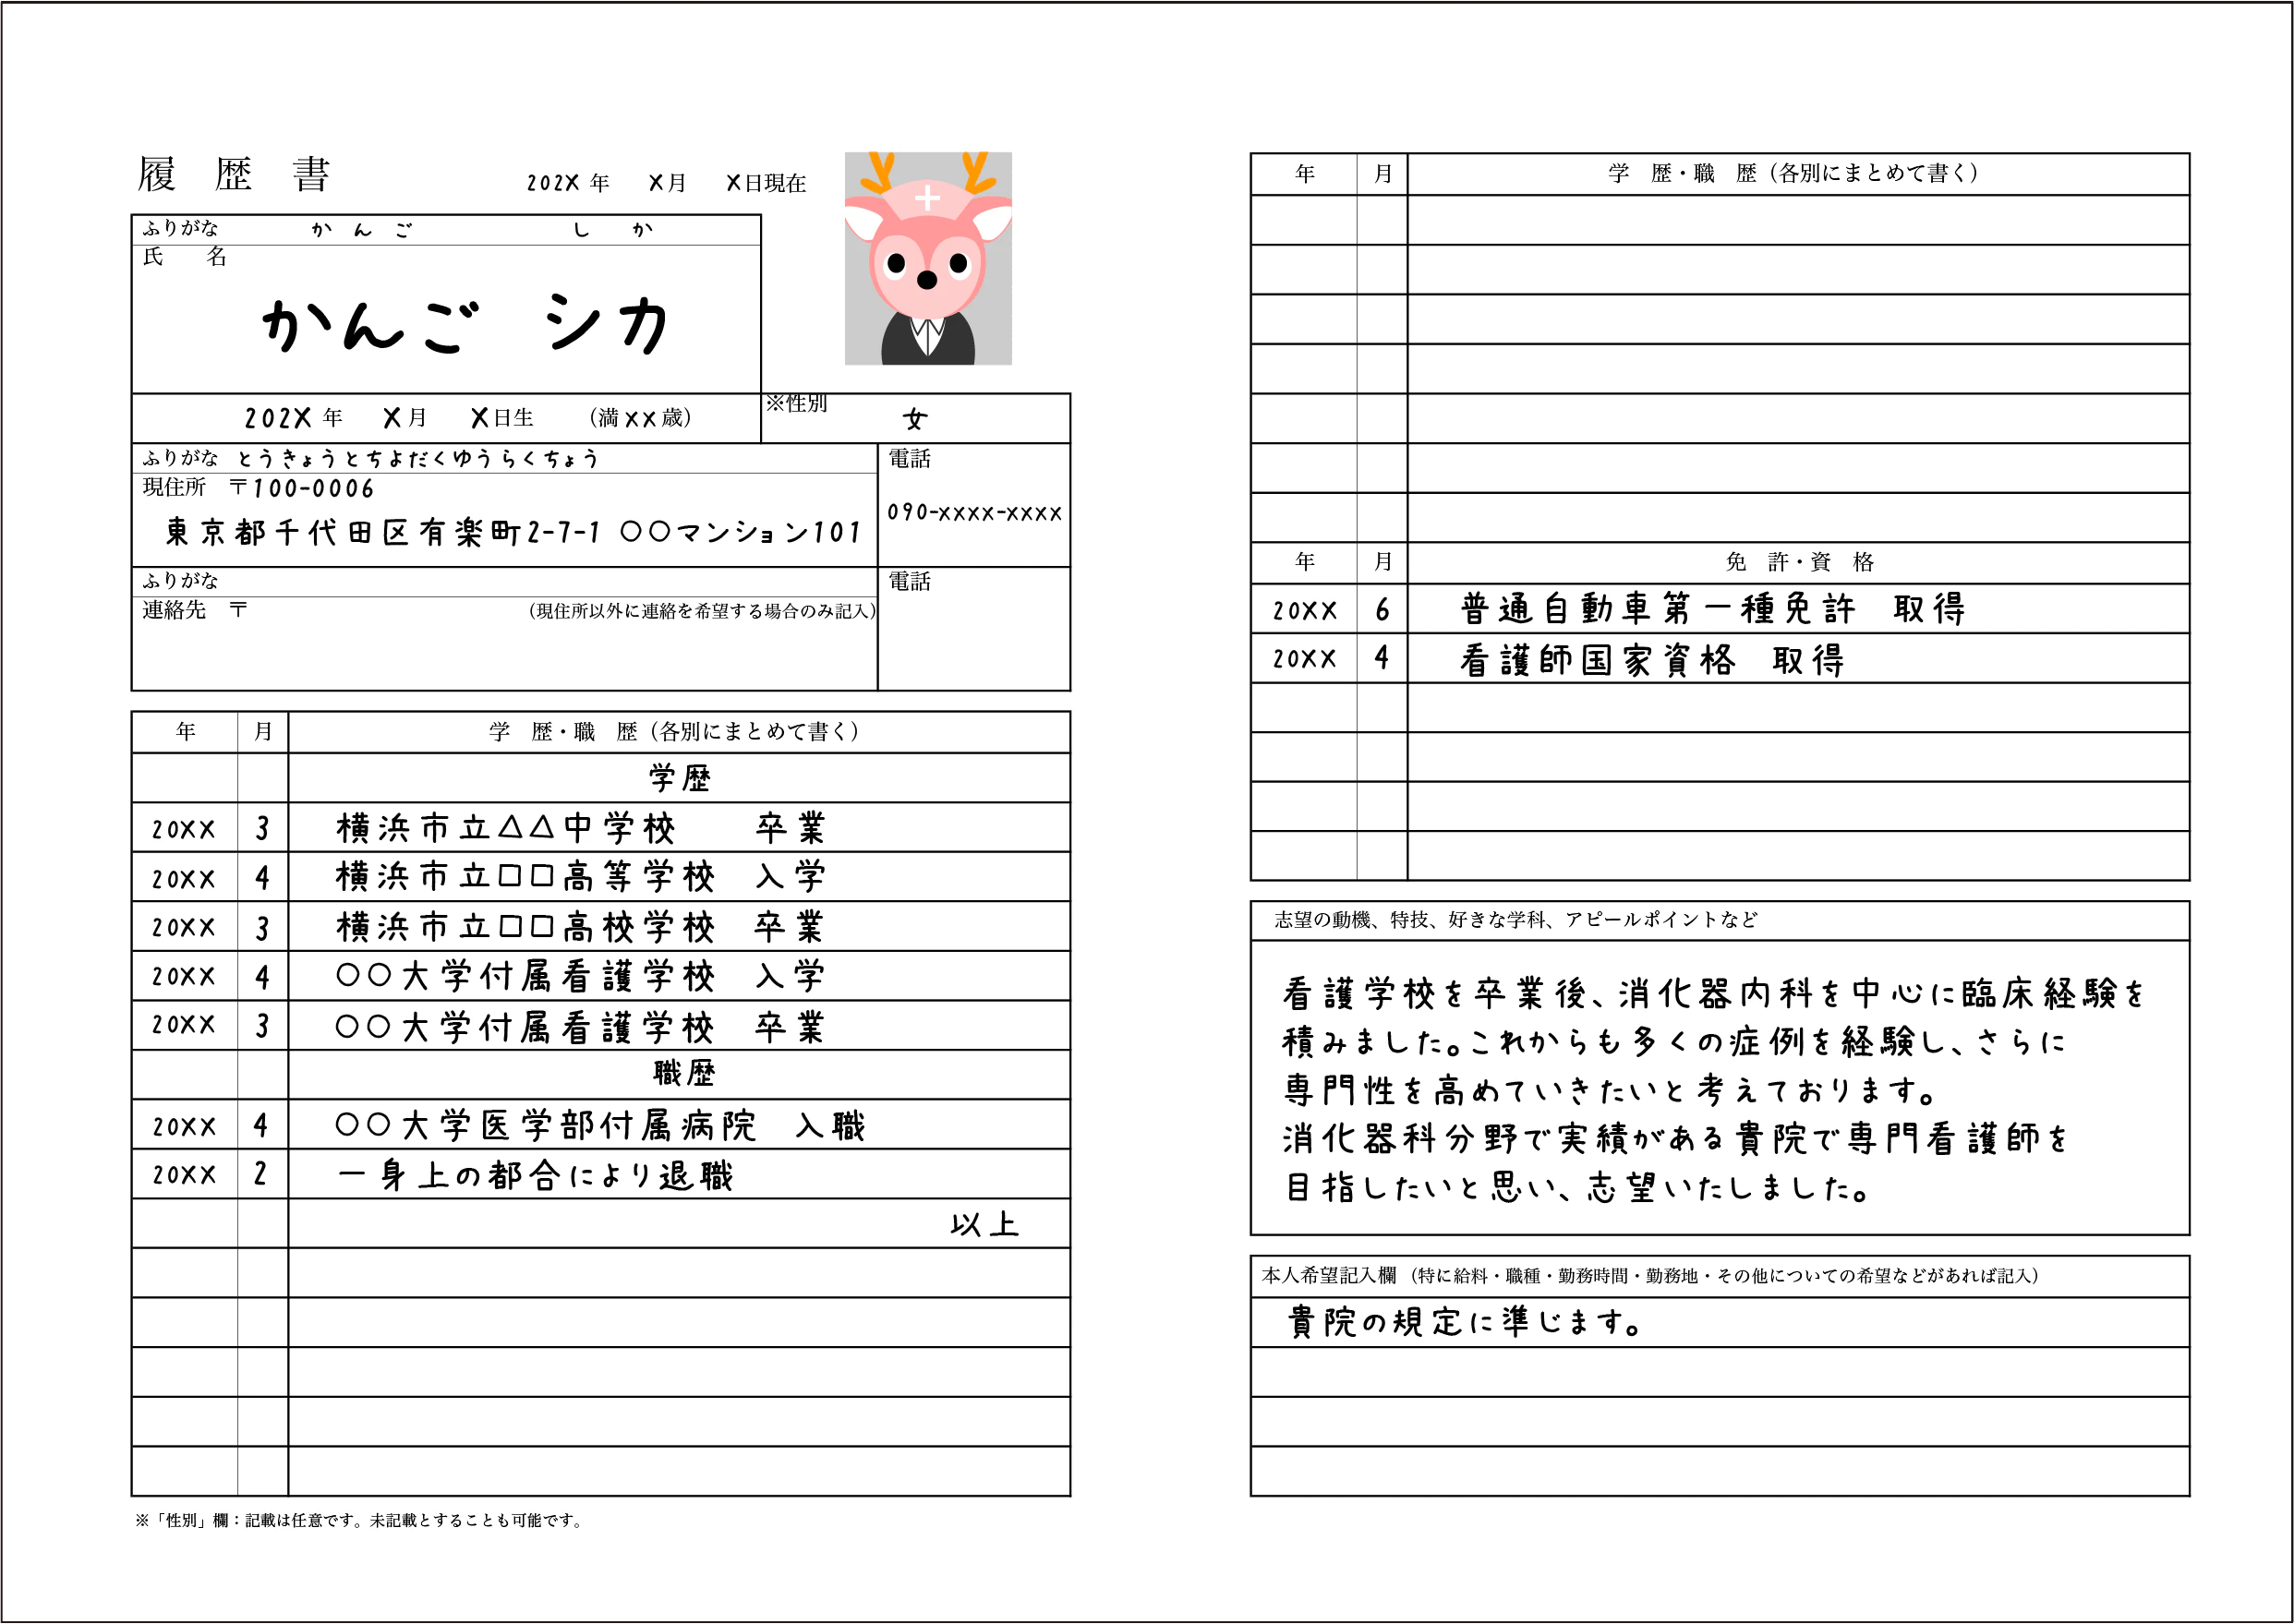 履 歴 書
202X 年 X月 X日現在
ふりがな かんご しか
氏 名
かんご シカ
202X 年 X月 X日生 （満 XX 歳）
※性別 女
ふりがな とうきょうとちよだくゆうらくちょう
現住所 〒100-0006
東京都千代田区有楽町2-7-1 ○○マンション101
電話
090-xxxx-xxxx
ふりがな
連絡先 〒 （現住所以外に連絡を希望する場合のみ記入）
電話
年 月 学 歴・職 歴（各別にまとめて書く）
学歴
20XX 3 横浜市立△△中学校 卒業
20XX 4 横浜市立□□高等学校 入学
20XX 3 横浜市立□□高校学校 卒業
20XX 4 ○○大学付属看護学校 入学
20XX 3 ○○大学付属看護学校 卒業
職歴
20XX 4 ○○大学医学部付属病院 入職
20XX 2 一身上の都合により退職
以上
※「性別」欄：記載は任意です。未記載とすることも可能です。
年 月 学 歴・職 歴（各別にまとめて書く）
年 月 免 許・資 格
20XX 6 普通自動車第一種免許 取得
20XX 4 看護師国家資格 取得
志望の動機、特技、好きな学科、アピールポイントなど
看護学校を卒業後、消化器内科を中心に臨床経験を
積みました。これからも多くの症例を経験し、さらに
専門性を高めていきたいと考えております。
消化器科分野で実績がある貴院で専門看護師を
目指したいと思い、志望いたしました。
本人希望記入欄（特に給料・職種・勤務時間・勤務地・その他についての希望などがあれば記入）
貴院の規定に準じます。